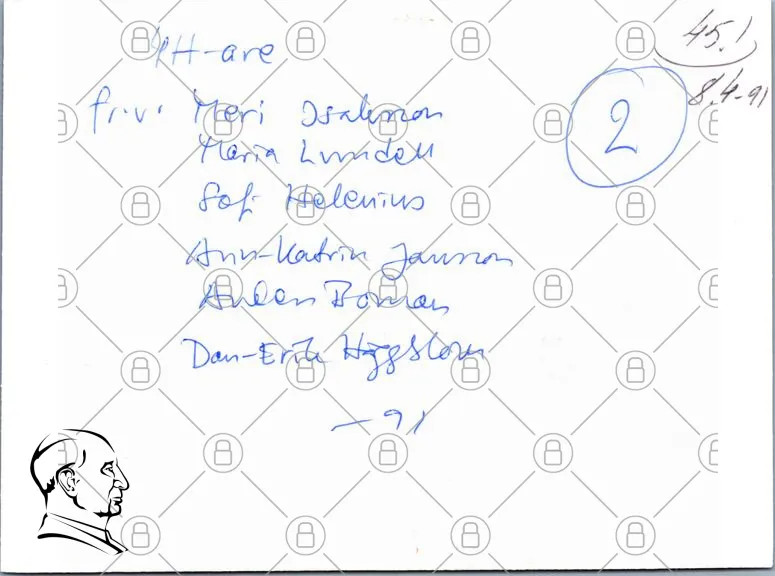 PH-are
45.1
8.4-91
fr.v. Meri Isaksson
2
Maria Lundell
Sofi Helenius
Ann-Katrin Jansson
Anders Boman
Dan-Erik Häggblom
-91